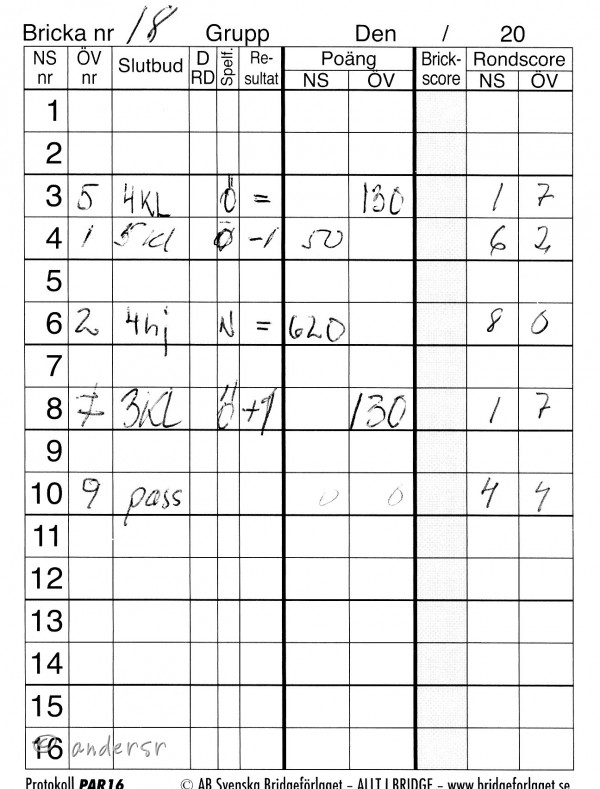 Bricka nr 18 Grupp Den / 20
NS nr ÖV nr Slutbud D RD Spelf. Re-sultat Poäng NS ÖV Brick-score Rondscore NS ÖV
1
2
3 5 4KL Ö = 130 1 7
4 1 5kl Ö -1 50 6 2
5
6 2 4hj N = 620 8 0
7
8 7 3KL Ö +1 130 1 7
9
10 9 pass 0 0 4 4
11
12
13
14
15
16 © andersr
Protokoll PAR16 © AB Svenska Bridgeförlaget – ALLT I BRIDGE – www.bridgeforlaget.se